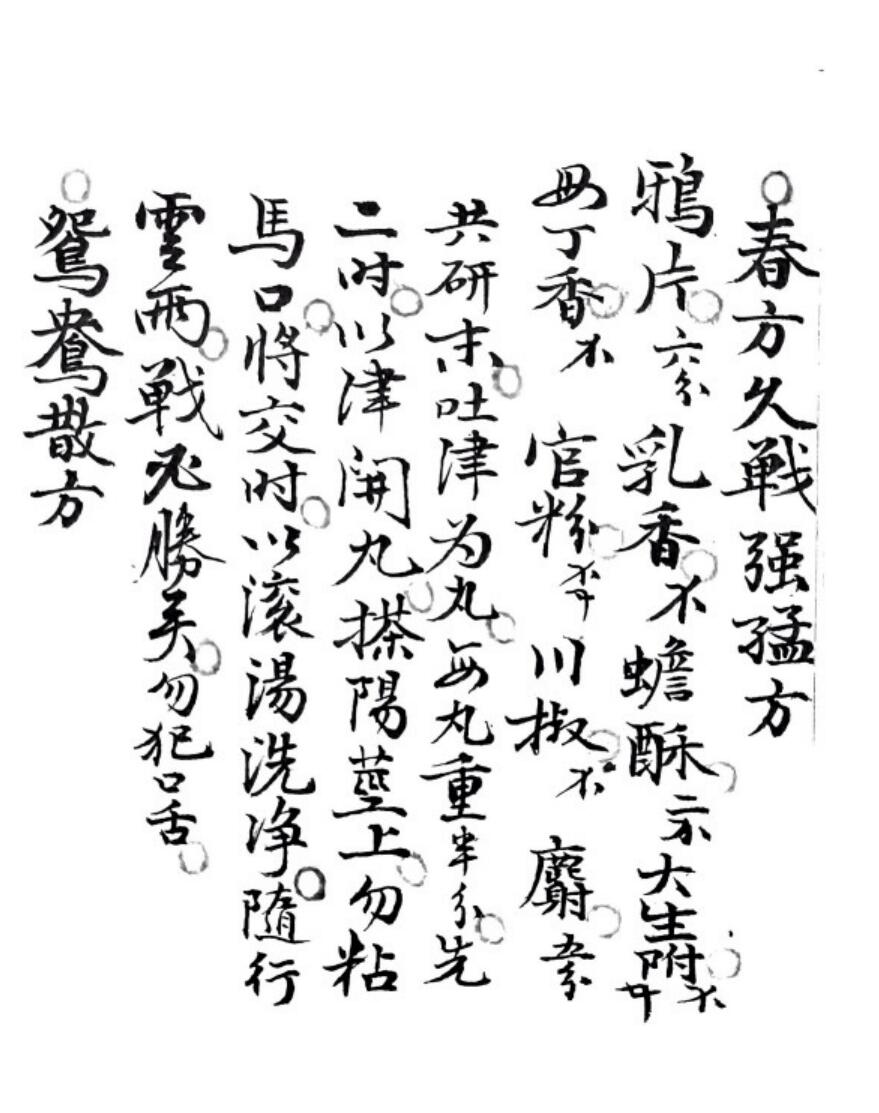 春方久戰强猛方
鴉片六分乳香不蟾酥二不大生附不
毋丁香不 官粉 川椒不 麝五分
共研末吐津为丸每丸重半分先
二时以津開丸搽陽莖上勿粘
馬口將交时以滚湯洗净隨行
雲雨戰必勝矣勿犯口舌
鴛鴦散方